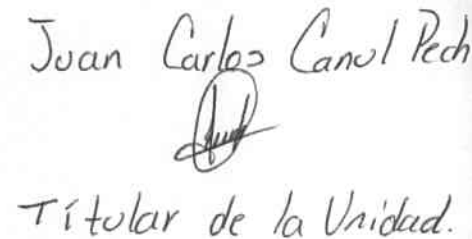 Juan Carlos Canul Pech
Títular de la Unidad.